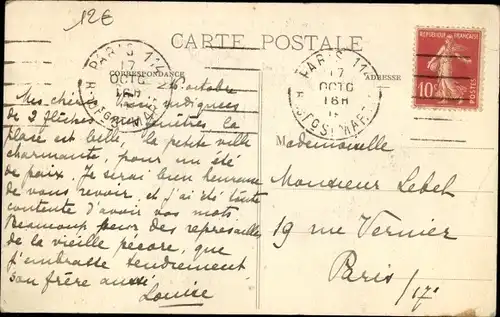 12€
CARTE POSTALE
CORRESPONDANCE
ADRESSE
RÉPUBLIQUE FRANÇAISE
10c
POSTES
PARIS 114
17
OCTO
16H
PARIS 114
17
OCTO
16H
octobre
Mes indiquées
de 2 flèches fenêtres la
place est belle, la petite ville
charmante, pour un été
de paix. Je serai bien heureuse
de vous revoir et j'ai été toute
contente d'avoir vos mots
Beaucoup pour des représailles
de la vieille pécore, que
j'embrasse tendrement
son frère aussi.
Louise
Mademoiselle
Monsieur Lebel
19 rue Vernier
Paris
17e